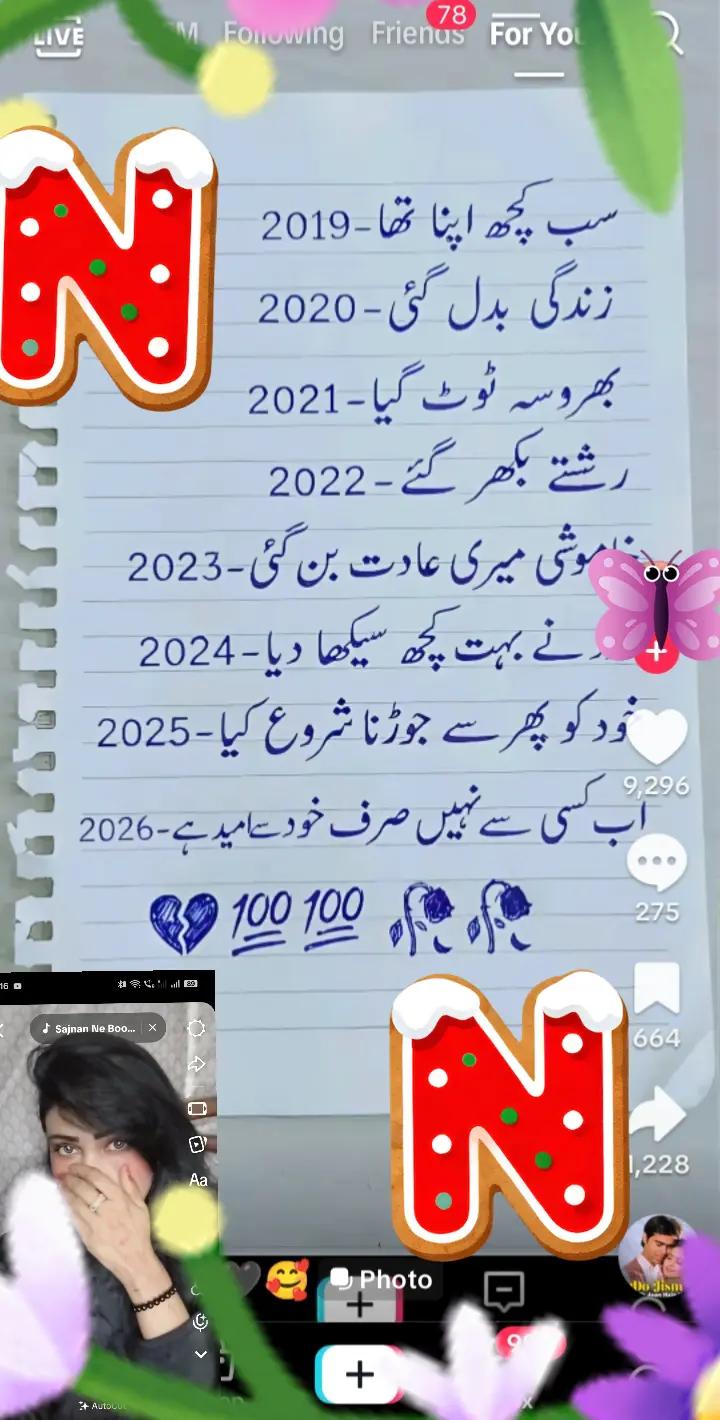 LIVE Following Friends 78 For You
N
سب کچھ اپنا تھا-2019
زندگی بدل گئی-2020
بھروسہ ٹوٹ گیا-2021
رشتے بکھر گئے-2022
میری عادت بن گئی-2023
نے بہت کچھ سیکھا دیا-2024
خود کو پھر سے جوڑنا شروع کیا-2025
اب کسی سے نہیں صرف خود سے امید ہے-2026
💔 100 100 🥀 🥀
9,296
275
664
1,228
N
16
89
Sajnan Ne Boo... ×
Aa
Photo
Do Jism
AutoCut